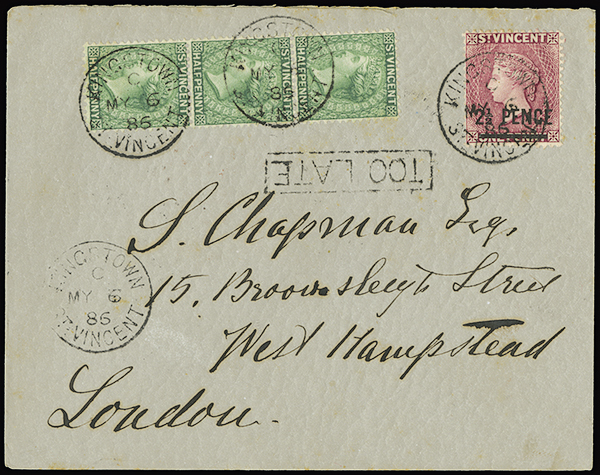 ST VINCENT
HALFPENNY
ST VINCENT
HALFPENNY
ST VINCENT
HALFPENNY
KINGSTOWN
C
MY 6
86
ST. VINCENT
KINGSTOWN
86
ST VINCENT
2½ PENCE
KINGSTOWN
86
ST. VINCENT
TOO LATE
S. Chapman Esq.
15, Broomsleigh Street
West Hampstead
London.
KINGSTOWN
C
MY 6
86
ST. VINCENT